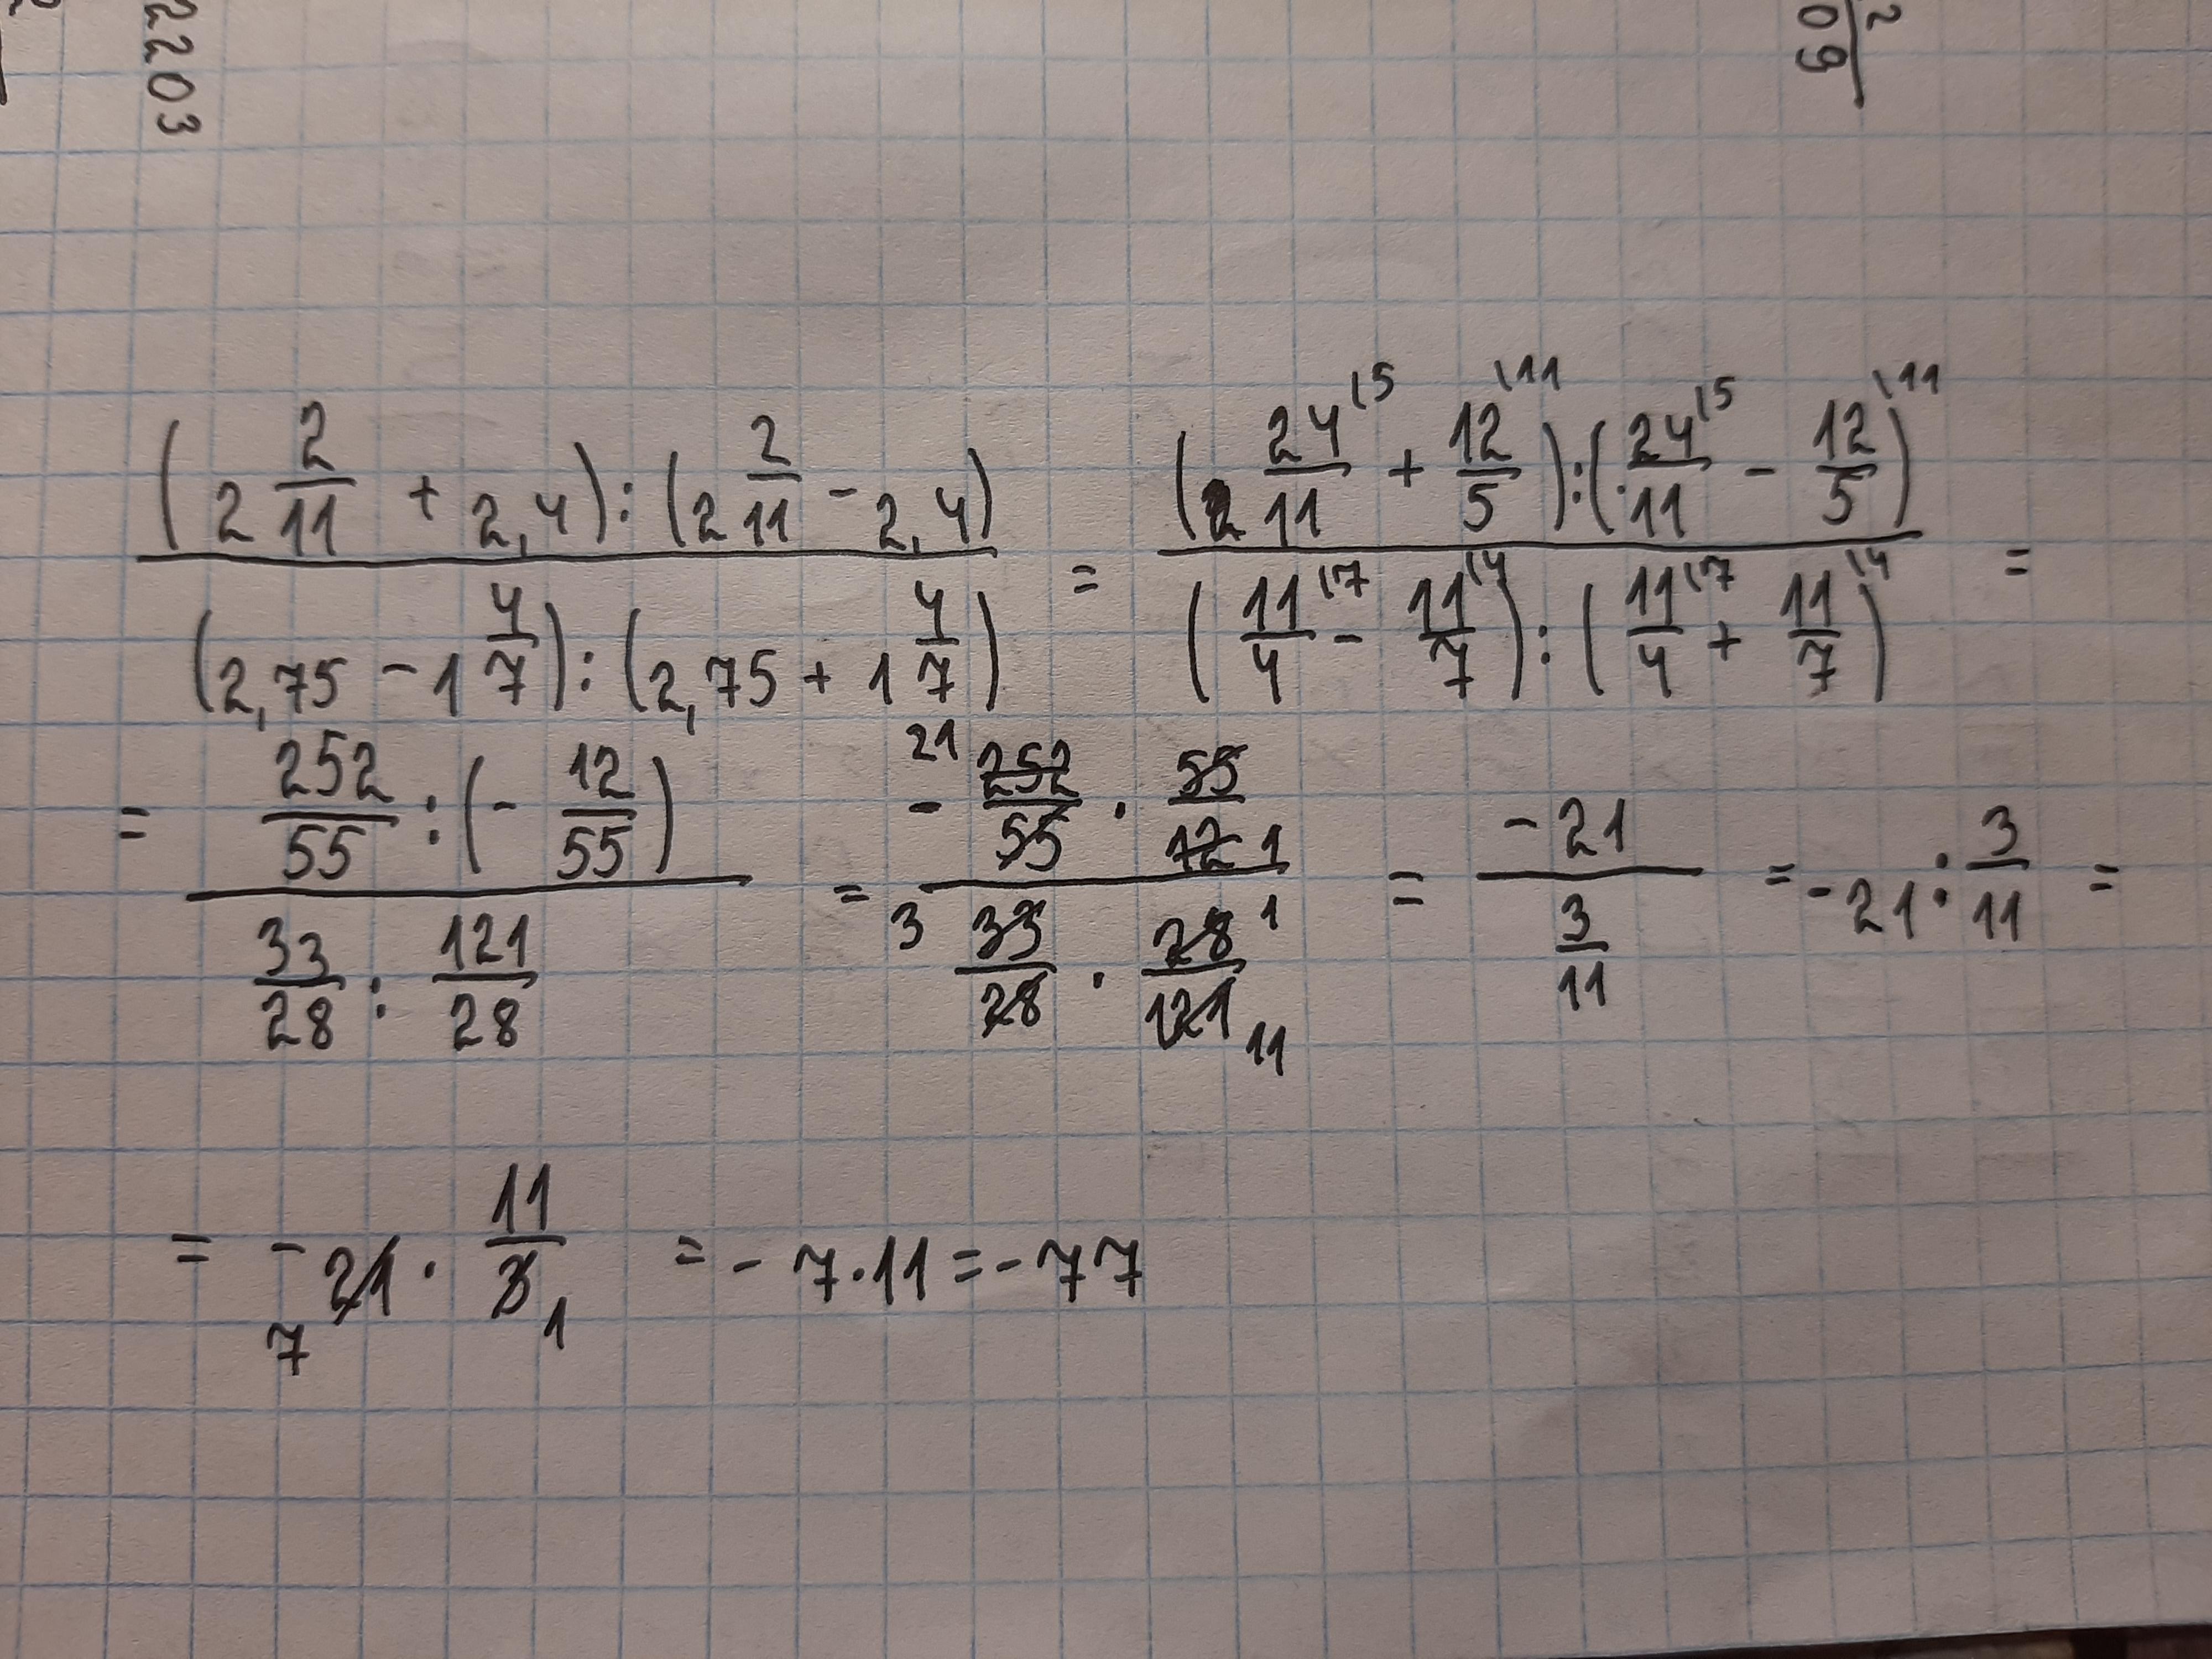 2203
2
09
(2 2/11 + 2,4) : (2 2/11 - 2,4) / (2,75 - 1 4/7) : (2,75 + 1 4/7) = (24/11 \5 + 12/5 \11) : (24/11 \5 - 12/5 \11) / (11/4 \7 - 11/7 \4) : (11/4 \7 + 11/7 \4) =
= 252/55 : (- 12/55) / 33/28 : 121/28 = 21 - 252/55 · 55/12 1 / 3 33/28 · 28 1/121 11 = -21 / 3/11 = -21 : 3/11 =
= - 7 21 · 11/3 1 = - 7 · 11 = - 77